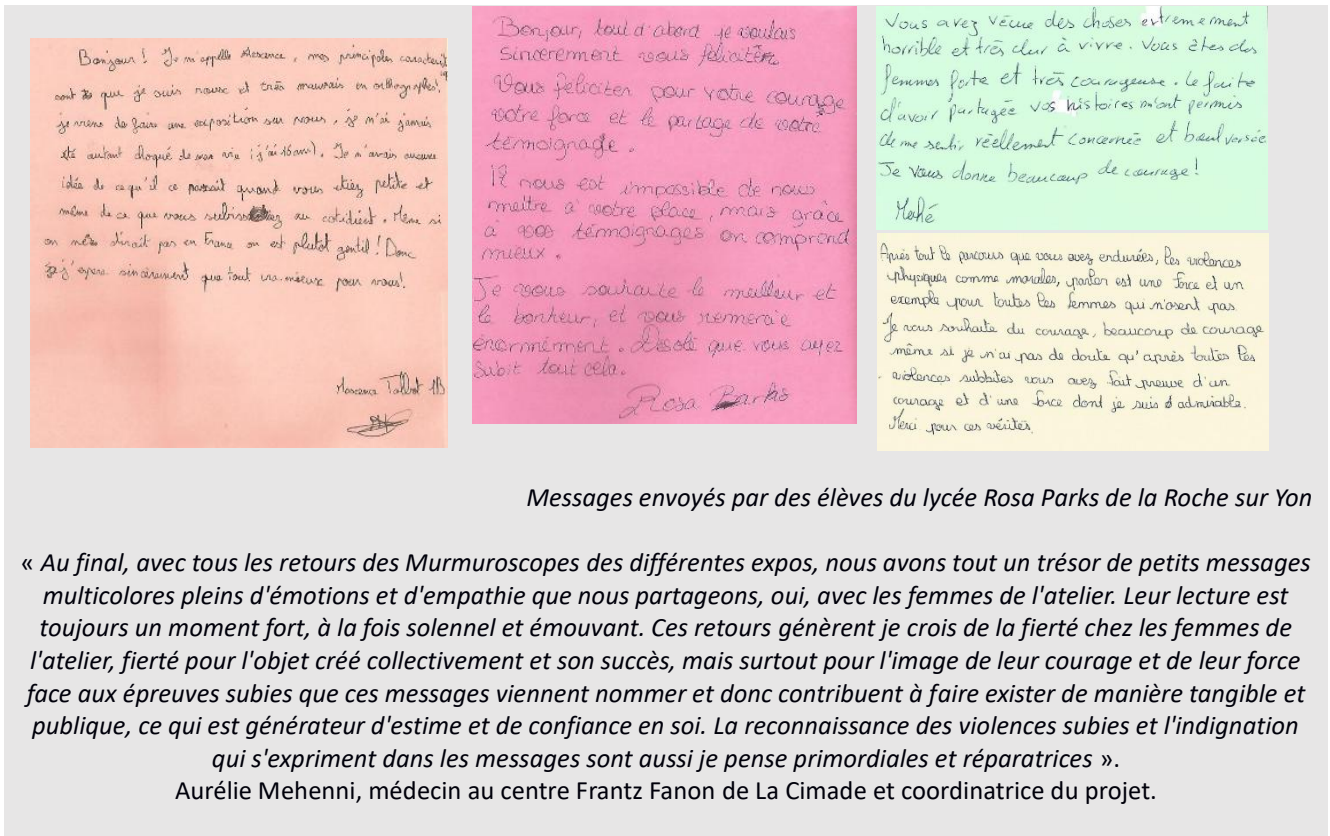 Bonjour ! Je m'appelle Maxence, mes principales caractérist
sont que je suis rousse et très mauvais en orthographe,
je viens de faire une exposition sur vous, je n'ai jamais
été autant choqué de mon vie (j'ai 16 ans). Je n'avais aucune
idée de ce qu'il ce passait quand vous étiez petite et
même de ce que vous subissez au cotidient. Même si
on dirait pas en France on est plutot gentil ! Donc
j'espere sincèrement que tout ira mieux pour vous !
Maxence Talbot 1B
Bonjour, tout d'abord je voulais
sincerement vous féliciter
Vous féliciter pour votre courage
votre force et le partage de votre
témoignage.
Il nous est impossible de nous
mettre à votre place, mais grâce
à vos témoignages on comprend
mieux.
Je vous souhaite le meilleur et
le bonheur, et vous remercie
énormément. Désolé que vous ayez
subit tout cela.
Rosa Parks
Vous avez vécue des choses extrement
horrible et très dur à vivre. Vous êtes des
femmes forte et très courageuse. Le faite
d'avoir partagée vos histoires m'ont permis
de me sentir réellement concernée et boulversée
Je vous donne beaucoup de courage !
Après tout le parcours que vous avez endurées, les violences
physiques comme morales, parler est une force et un
exemple pour toutes les femmes qui n'osent pas.
Je vous souhaite du courage, beaucoup de courage
même si je n'ai pas de doute qu'après toutes les
violences subbites vous avez fait preuve d'un
courage et d'une force dont je suis admirable.
Merci pour ces vérités.
Messages envoyés par des élèves du lycée Rosa Parks de la Roche sur Yon
« Au final, avec tous les retours des Murmuroscopes des différentes expos, nous avons tout un trésor de petits messages
multicolores pleins d'émotions et d'empathie que nous partageons, oui, avec les femmes de l'atelier. Leur lecture est
toujours un moment fort, à la fois solennel et émouvant. Ces retours génèrent je crois de la fierté chez les femmes de
l'atelier, fierté pour l'objet créé collectivement et son succès, mais surtout pour l'image de leur courage et de leur force
face aux épreuves subies que ces messages viennent nommer et donc contribuent à faire exister de manière tangible et
publique, ce qui est générateur d'estime et de confiance en soi. La reconnaissance des violences subies et l'indignation
qui s'expriment dans les messages sont aussi je pense primordiales et réparatrices ».
Aurélie Mehenni, médecin au centre Frantz Fanon de La Cimade et coordinatrice du projet.